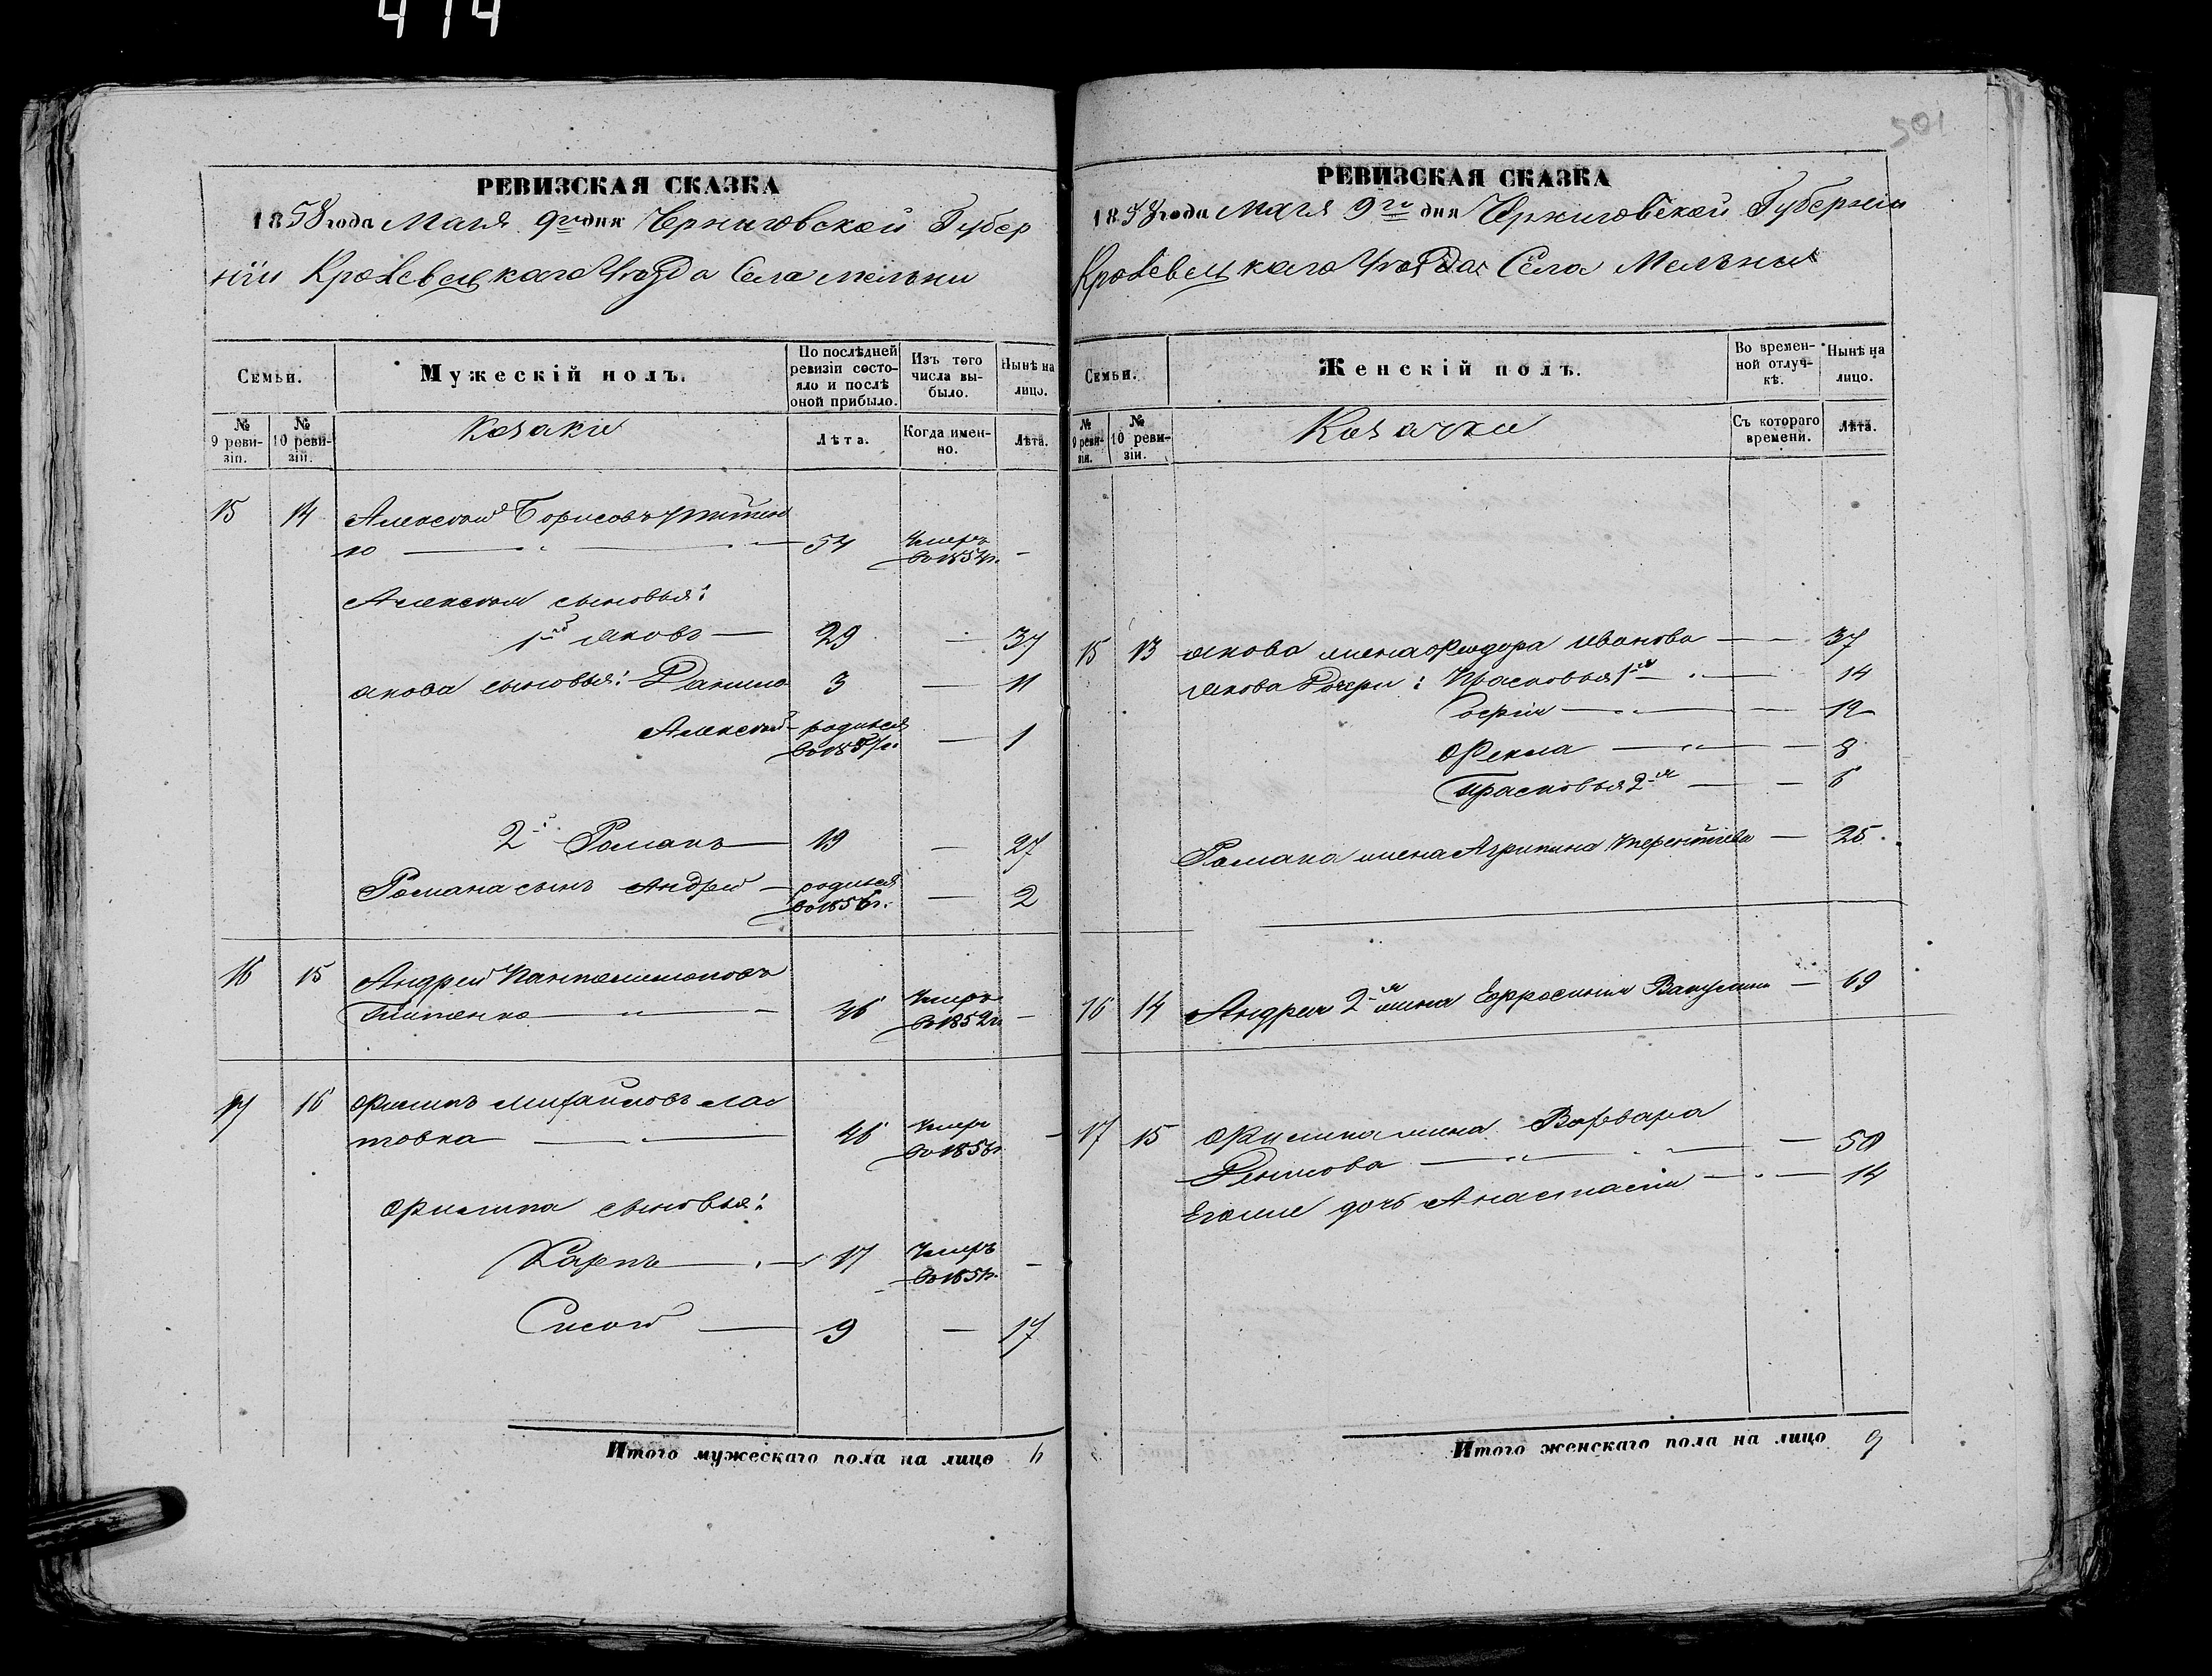 474
501
РЕВИЗСКАЯ СКАЗКА
1858 года Маія 9го дня Черниговской Губер
ніи Кролевецкаго Уезда Села Мельни
Семьи.
Мужескій полъ.
По послѣдней ревизіи состояло и послѣ оной прибыло.
Изъ того числа выбыло.
Нынѣ на лицо.
№ 9 ревизіи.
№ 10 ревизіи.
Козаки
Лѣта.
Когда именно.
Лѣта.
15 14 Алексей Борисовъ
ко 54 Умеръ в 1854 г. -
Алексея сыновья:
1й Яковъ 29 — 37
Якова сыновья: Данило 3 — 11
Алексей родился в 1857 г. — 1
2й Романъ 19 — 27
Романа сынъ Андрей родился в 1856 г. — 2
16 15 Андрей Пантелимоновъ
Титенко 46 Умеръ в 1852 г. -
17 16 Филипъ Михайловъ Лас
товка 46 Умеръ в 1856 г. -
Филипа сыновья:
Карпъ 17 Умеръ -
Сисой 9 — 17
Итого мужескаго пола на лицо 6
РЕВИЗСКАЯ СКАЗКА
1858 года Маія 9го дня Черниговской Губерніи
Кролевецкаго Уезда Села Мельни
Семьи.
Женскій полъ.
Во временной отлучкѣ.
Нынѣ на лицо.
№ 9 ревизіи.
№ 10 ревизіи.
Козачки
Съ котораго времени.
Лѣта.
15 13 Якова жена Феодора Иванова — 37
Якова Дочери: Прасковья 1я — 14
Софія — 12
Фекла — 8
Прасковья 2я — 6
Романа жена Агрипина Терентіева — 25
16 14 Андрея 2я жена Ефросинія — 69
17 15 Филипа жена Варвара
Денисова — 50
Егоже дочь Анастасія — 14
Итого женскаго пола на лицо 9